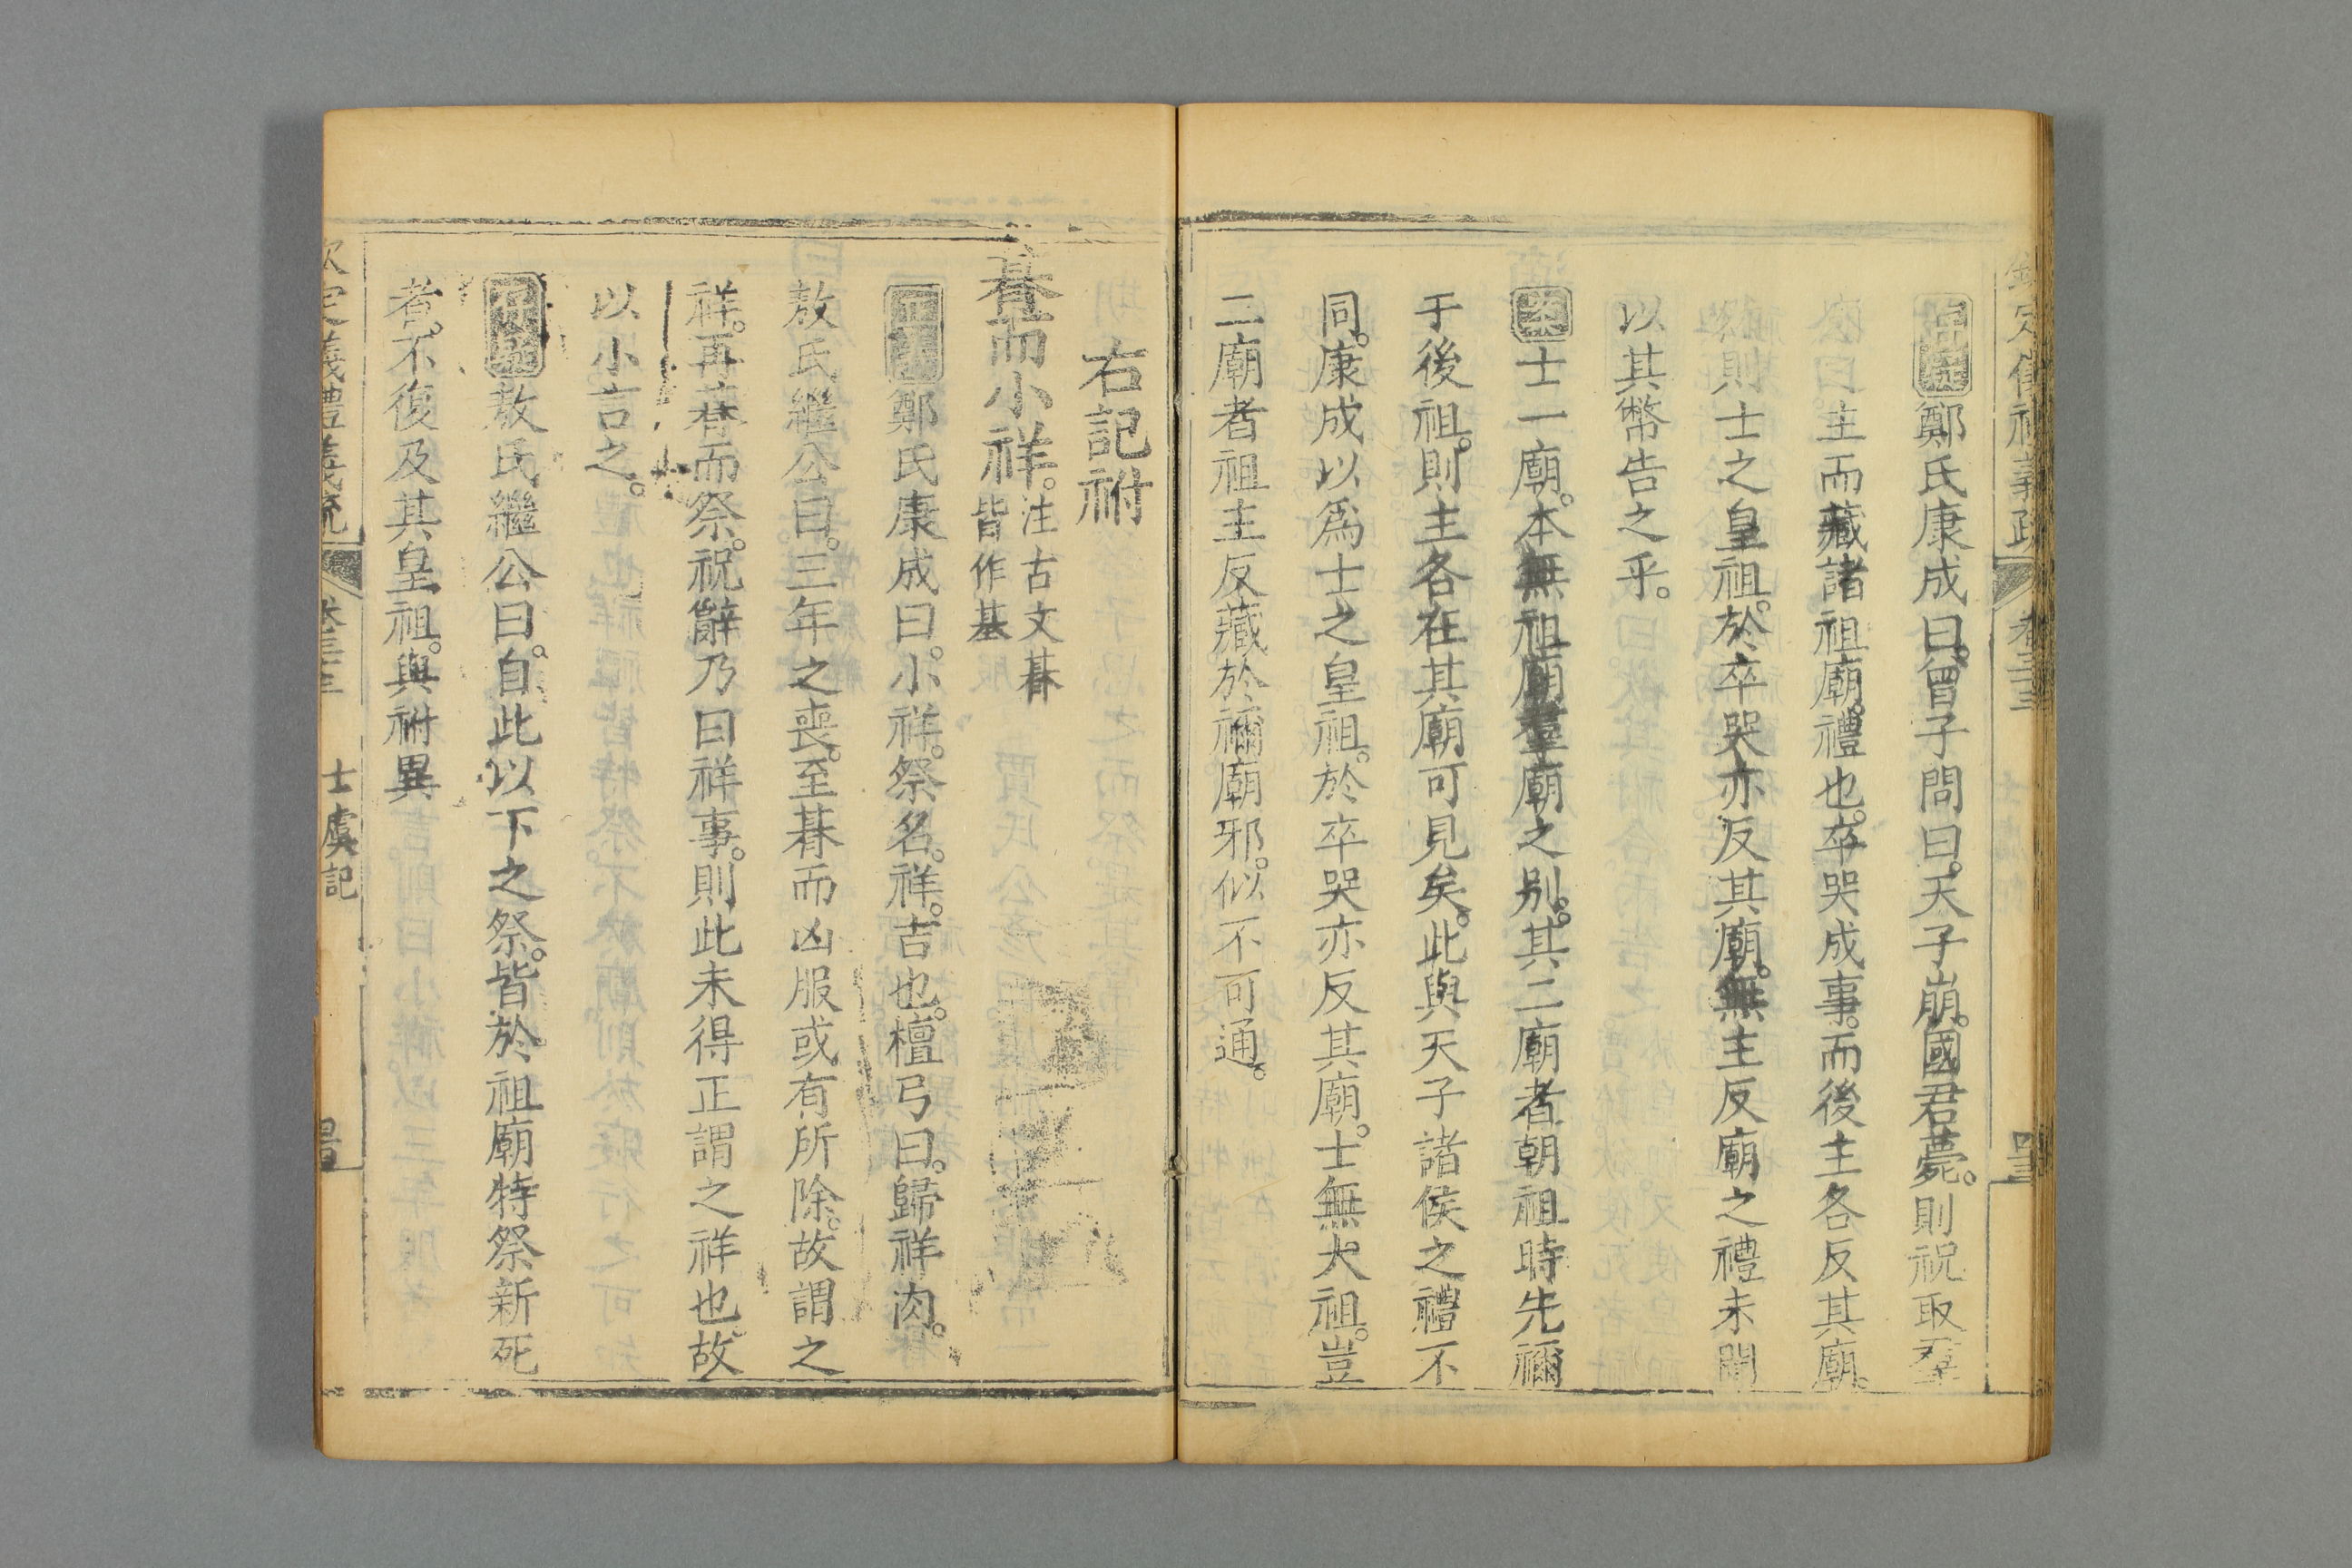 欽定儀禮義疏 卷三十三
鄭氏康成曰。曾子問曰。天子崩。國君薨。則祝取羣
廟之主而藏諸祖廟。禮也。卒哭成事。而後主各反其廟。
則士之皇祖。於卒哭亦反其廟。無主反廟之禮未聞
以其幣告之乎。
案士一廟。本無祖廟羣廟之别。其二廟者朝祖時先禰
于後祖。則主各在其廟可見矣。此與天子諸侯之禮不
同。康成以為士之皇祖。於卒哭亦反其廟。士無大祖。豈
二廟者祖主反藏於禰廟邪。似不可通。
右記祔
朞而小祥。注古文朞皆作基
正義鄭氏康成曰。小祥。祭名。祥。吉也。檀弓曰。歸祥肉。
敖氏繼公曰。三年之喪。至朞而凶服或有所除。故謂之
祥。再朞而祭。祝辭乃曰祥事。則此未得正謂之祥也。故
以小言之。
敖氏繼公曰。自此以下之祭。皆於祖廟特祭新死
者。不復及其皇祖。與祔異
欽定儀禮義疏 卷三十三 士虞記